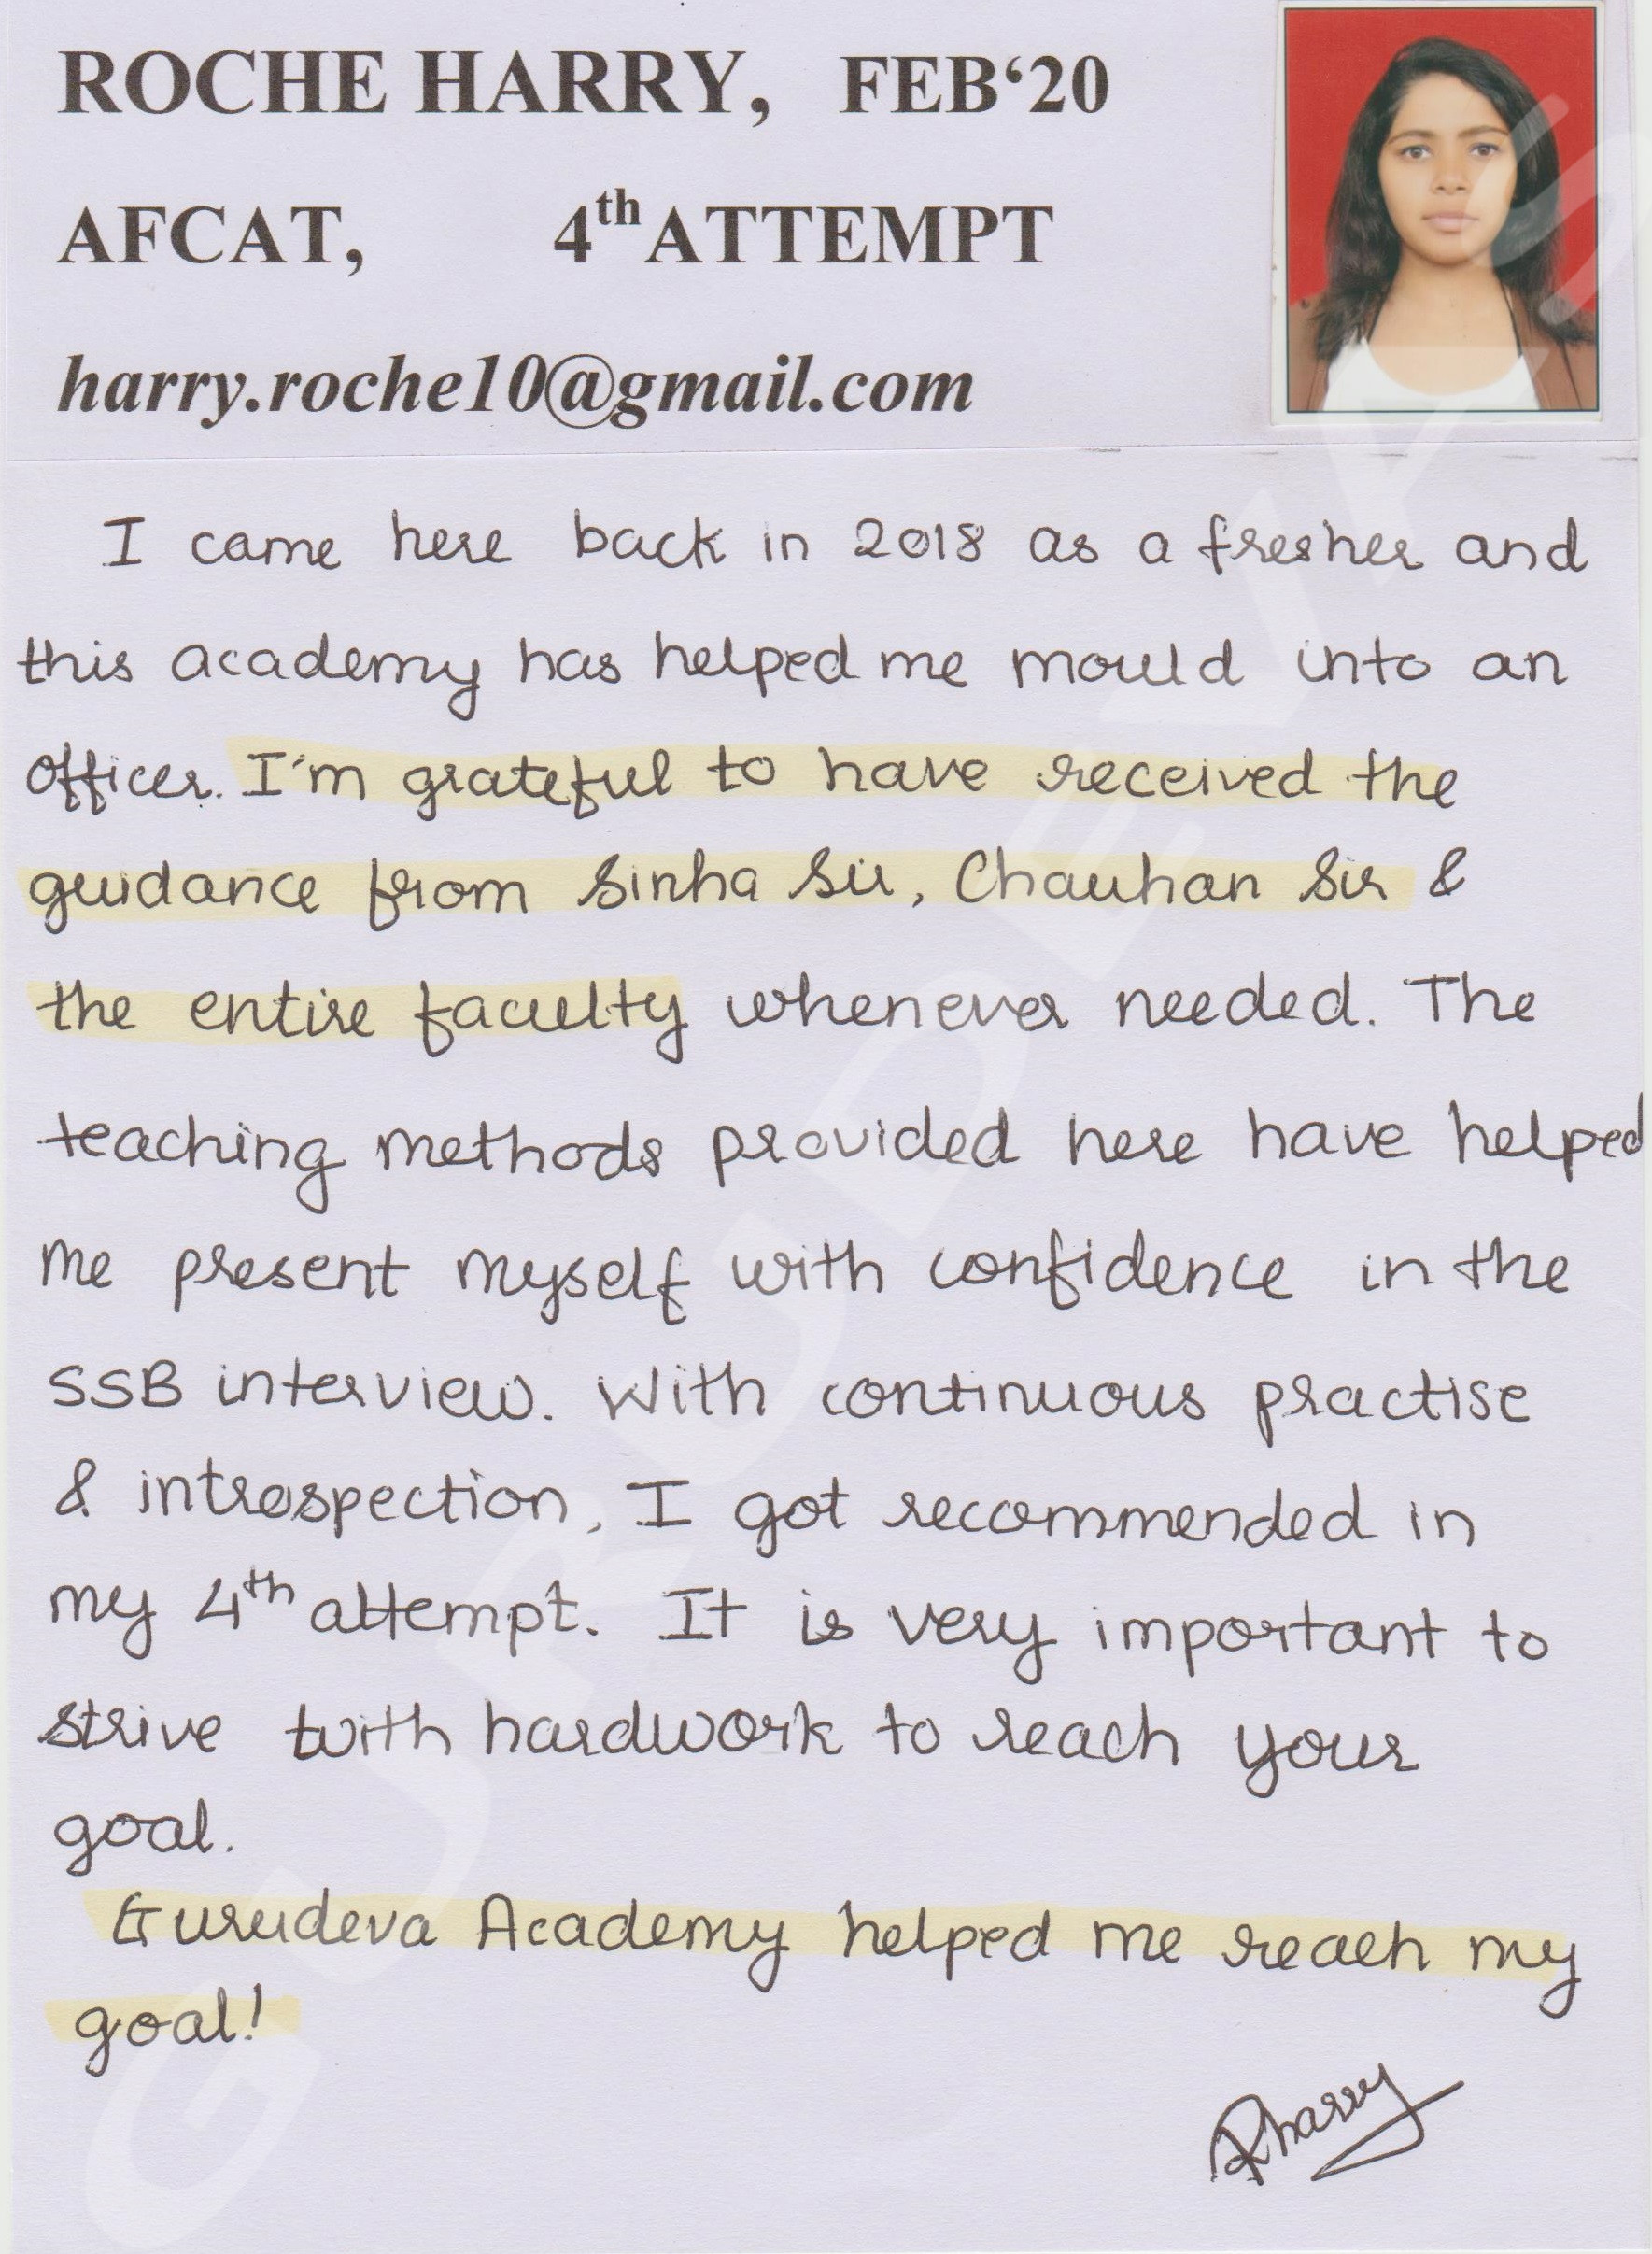 ROCHE HARRY, FEB‘20
AFCAT, 4th ATTEMPT
harry.roche10@gmail.com
I came here back in 2018 as a fresher and
this academy has helped me mould into an
officer. I'm grateful to have received the
guidance from Sinha Sir, Chauhan Sir &
the entire faculty whenever needed. The
teaching methods provided here have helped
me present myself with confidence in the
SSB interview. With continuous practise
& introspection, I got recommended in
my 4th attempt. It is very important to
strive with hardwork to reach your
goal.
Gurudeva Academy helped me reach my
goal!
Rharry
GURUDEVA